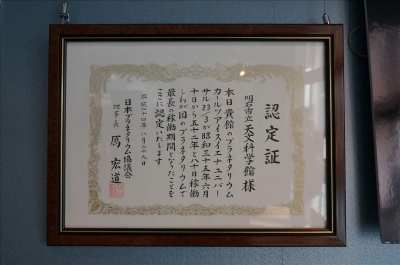 認定証
明石市立 天文科学館 様
本日貴館のプラネタリウム
カールツァイスイエナ ユニバー
サル23/3が昭和三十五年六月
十日から五十二年と八十日稼働
しわが国のプラネタリウムで
最長の稼働期間となったことを
ここに認定いたします
平成二十四年八月二十九日
日本プラネタリウム協議会
理事長 原 宏道